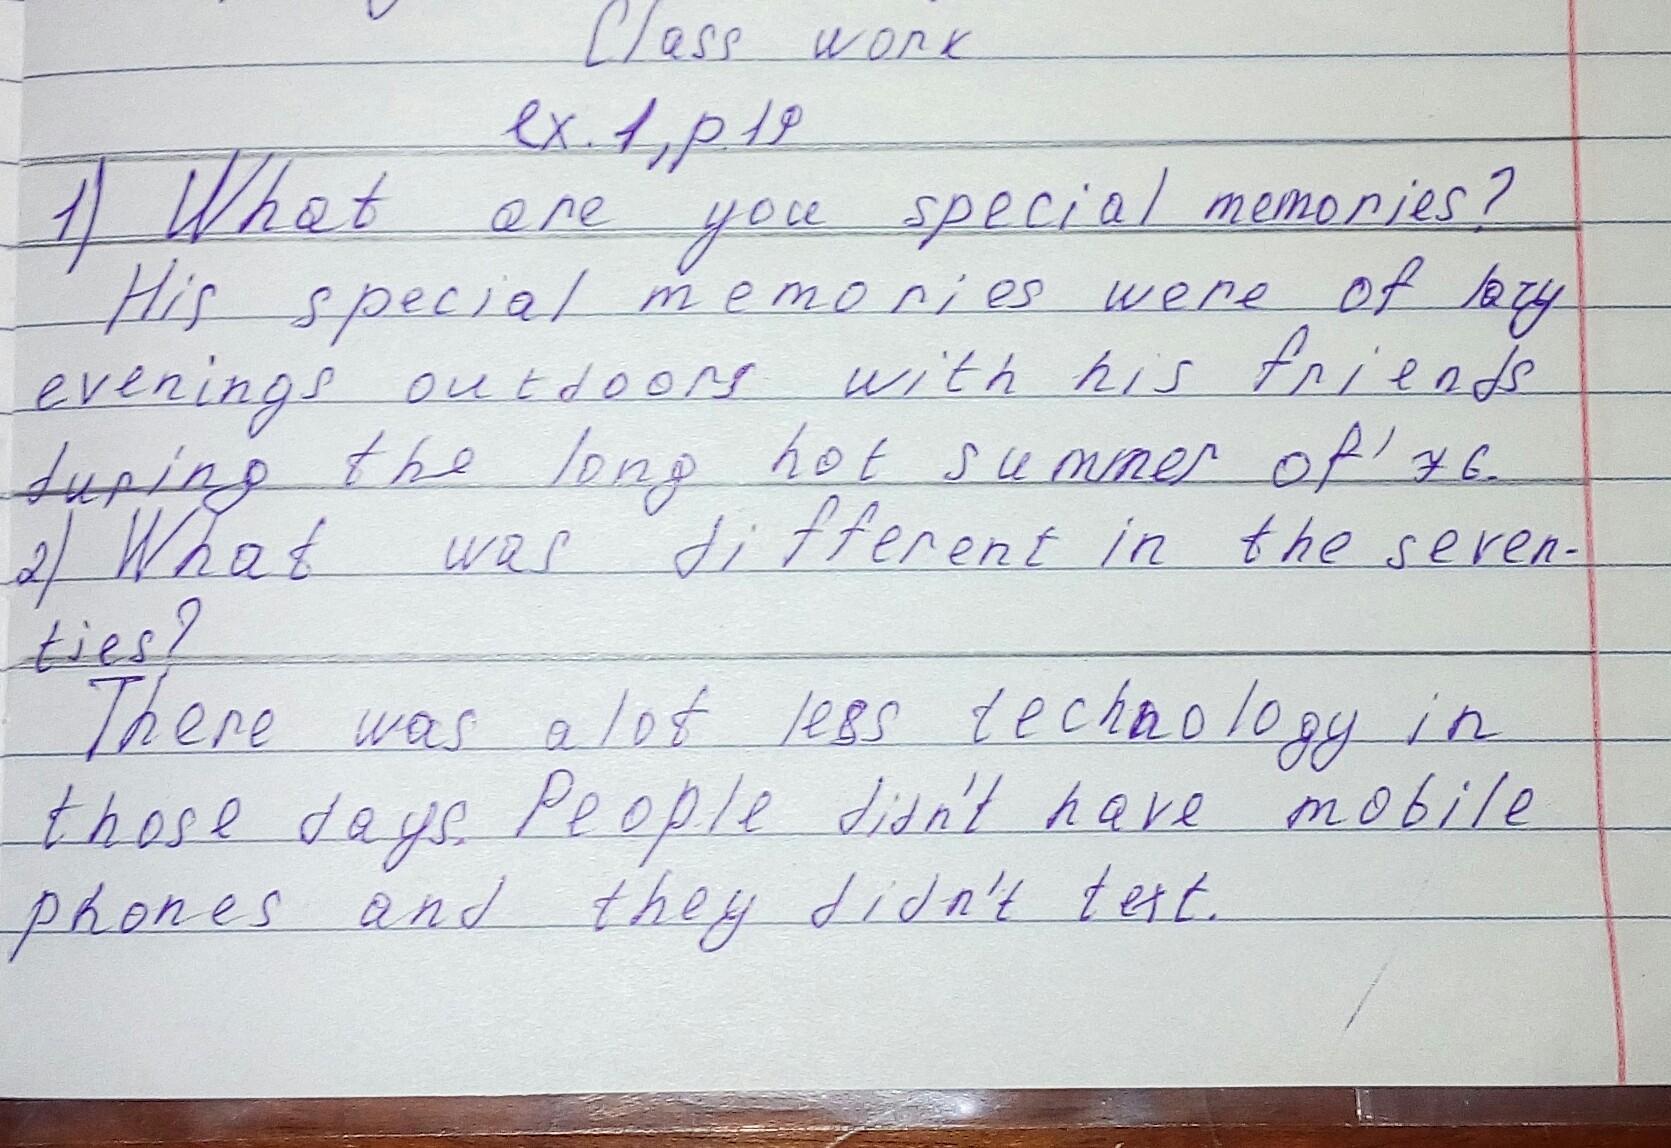 Class work
ex. 1, p 19
1) What are you special memories?
His special memories were of lazy
evenings outdoors with his friends
during the long hot summer of '76.
2) What was different in the seven-
ties?
There was alot less technology in
those days. People didn't have mobile
phones and they didn't text.